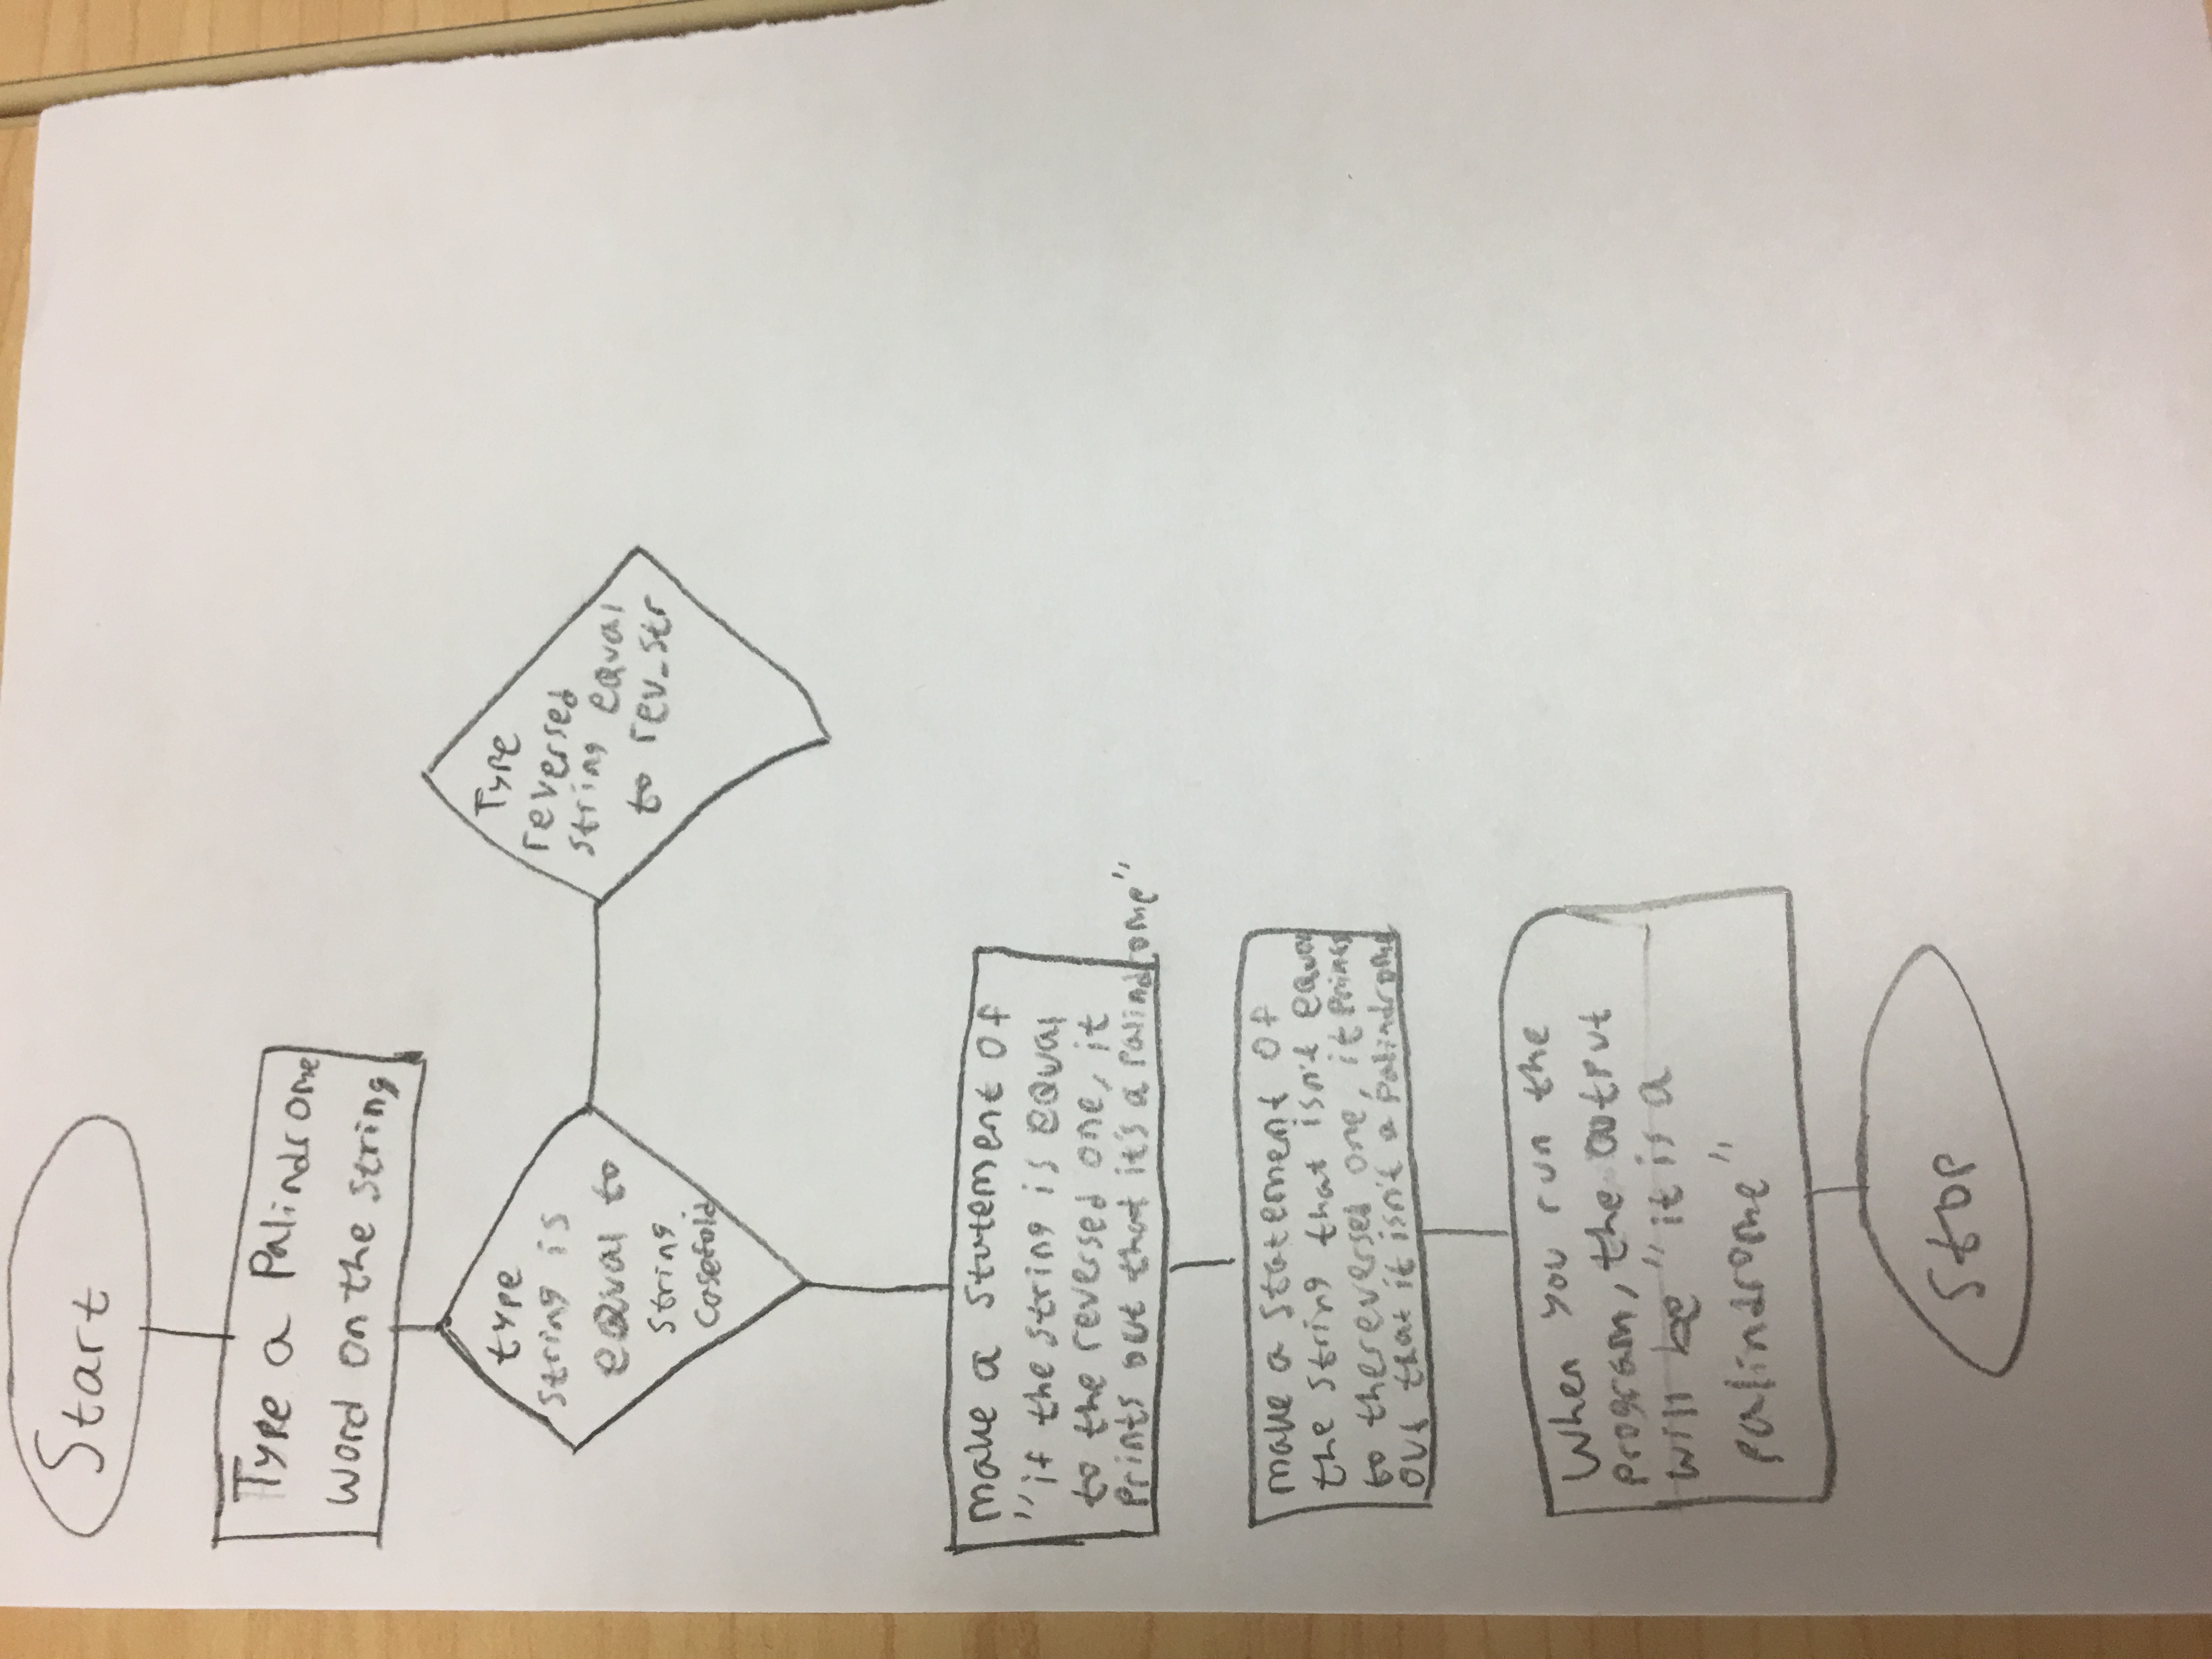 Start
Type a Palindrome
word on the string
type
string is
equal to
string.
casefold
Type
reversed
string equal
to rev_str
make a statement of
"if the string is equal
to the reversed one, it
prints out that it's a palindrome"
make a statement of
the string that isn't equal
to the reversed one, it prints
out that it isn't a palindrome
When you run the
program, the output
will be "it is a
palindrome"
Stop